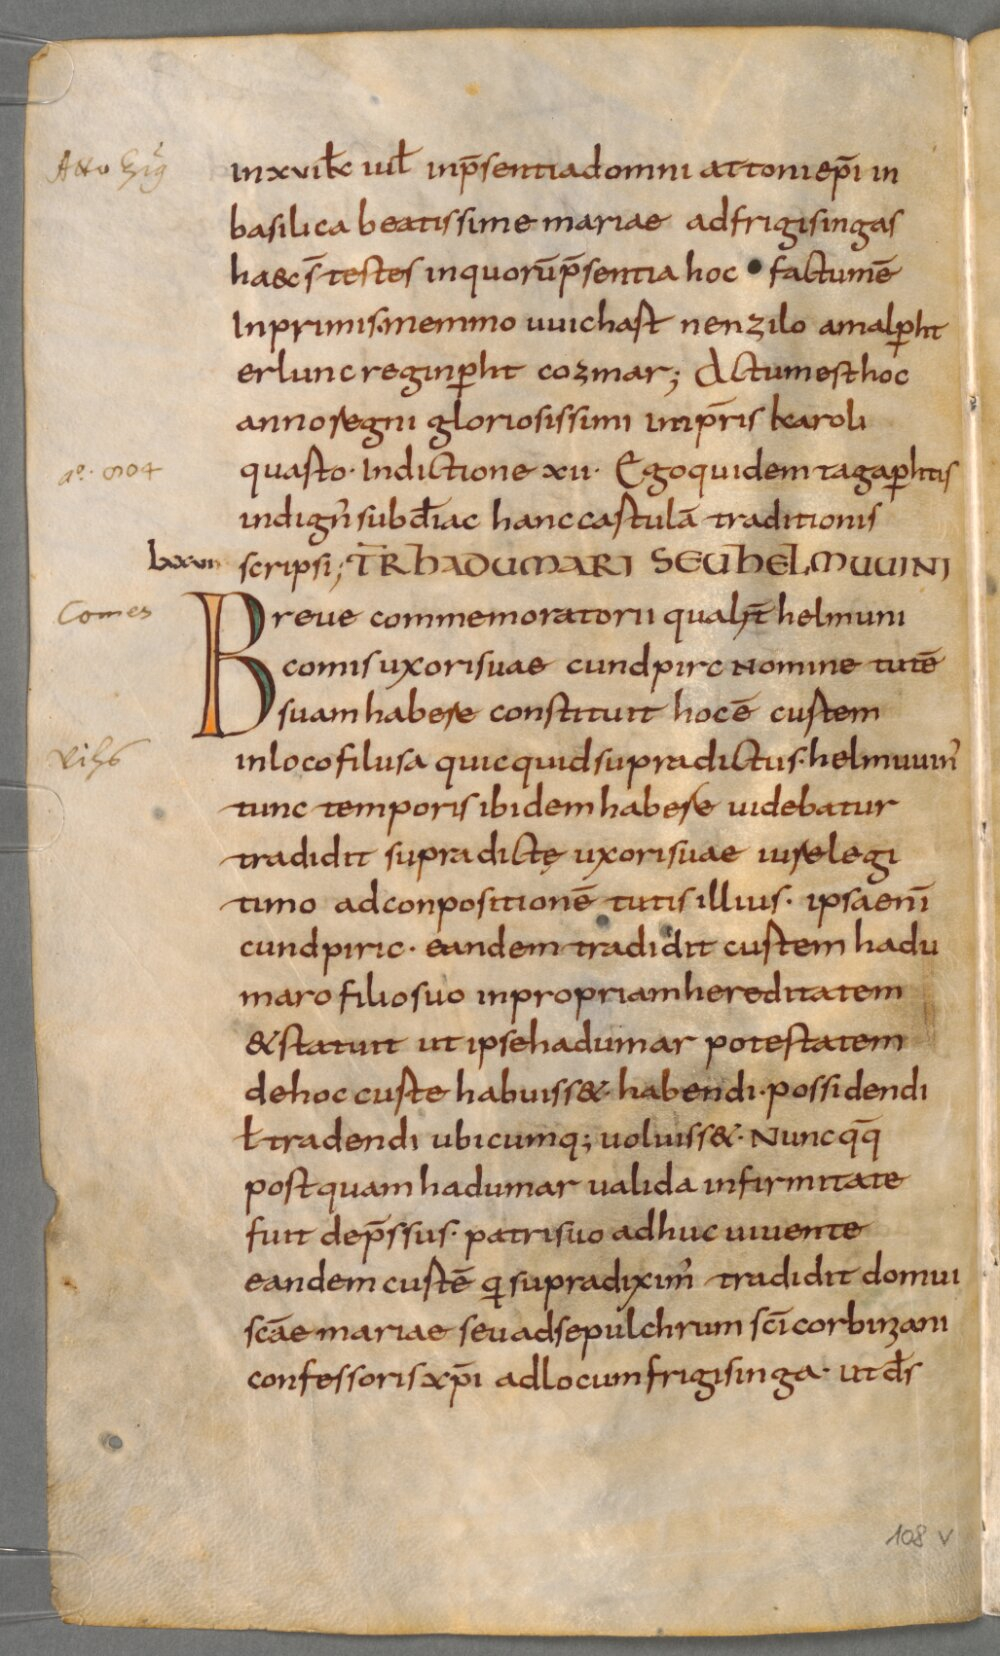 Atto
in xvi kł iuł inp̄sentia domni attoni ep̄i in
basilica beatissime mariae ad frigisingas
haec s̄ testes in quorū p̄sentia hoc factum ē
Inprimis memmo uuichast nenzilo amalꝑht
erlunc reginꝑht cozmar; Actum est hoc
anno regni gloriosissimi imp̄ris karoli
aº. 804
quarto · Indictione xii · Ego quidem tagaꝑhtis
indign' subdiac̄ hanc cartulā traditionis
scripsi; TR̄ HADUMARI SEU HELMUUINI
Comes
Breue commemoratorii qualit̄ helmuni
comis uxori suae cundpirc nomine tutē
suam habere constituit hoc ē curtem
Vihs
in loco filusa quicquid supradictus · helmuuin'
tunc temporis ibidem habere uidebatur
tradidit supradictę uxori suae iure legi
timo ad conpositionē tutis illius · ipsa enī
cundpiric · eandem tradidit curtem hadu
maro filio suo in propriam hereditatem
& statuit ut ipse hadumar potestatem
de hoc curte habuiss& · habendi · possidendi
ł tradendi ubicumq; uoluiss& · Nunc q̄q̄
postquam hadumar ualida infirmitate
fuit dep̄ssus · patri suo adhuc uiuente
eandem curtē q̄ supradixim' tradidit domui
sc̄ae mariae seu ad sepulchrum sc̄i corbiniani
confessoris xp̄i ad locum frigisinga · ut d̄s
108 v